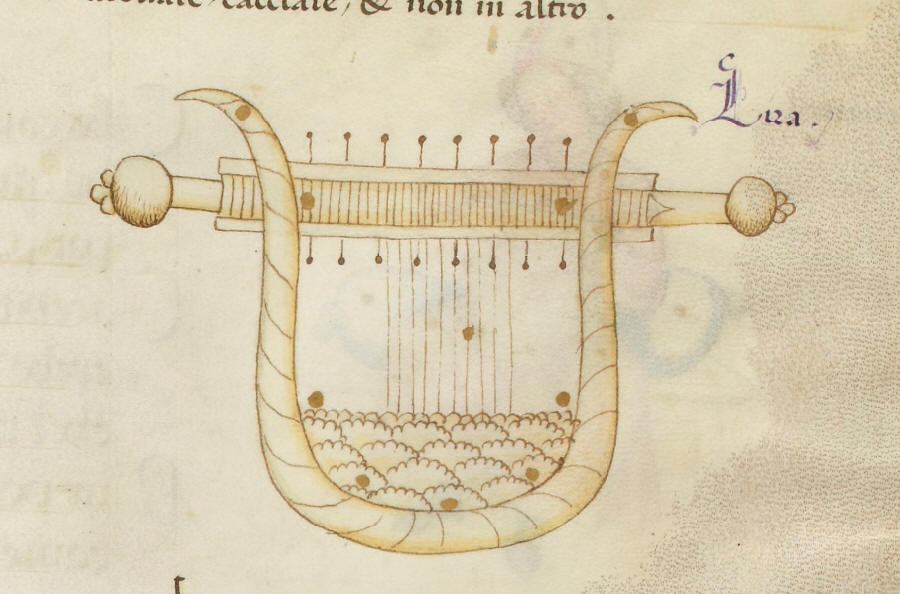 cacciare, & non in altro .
Lira .